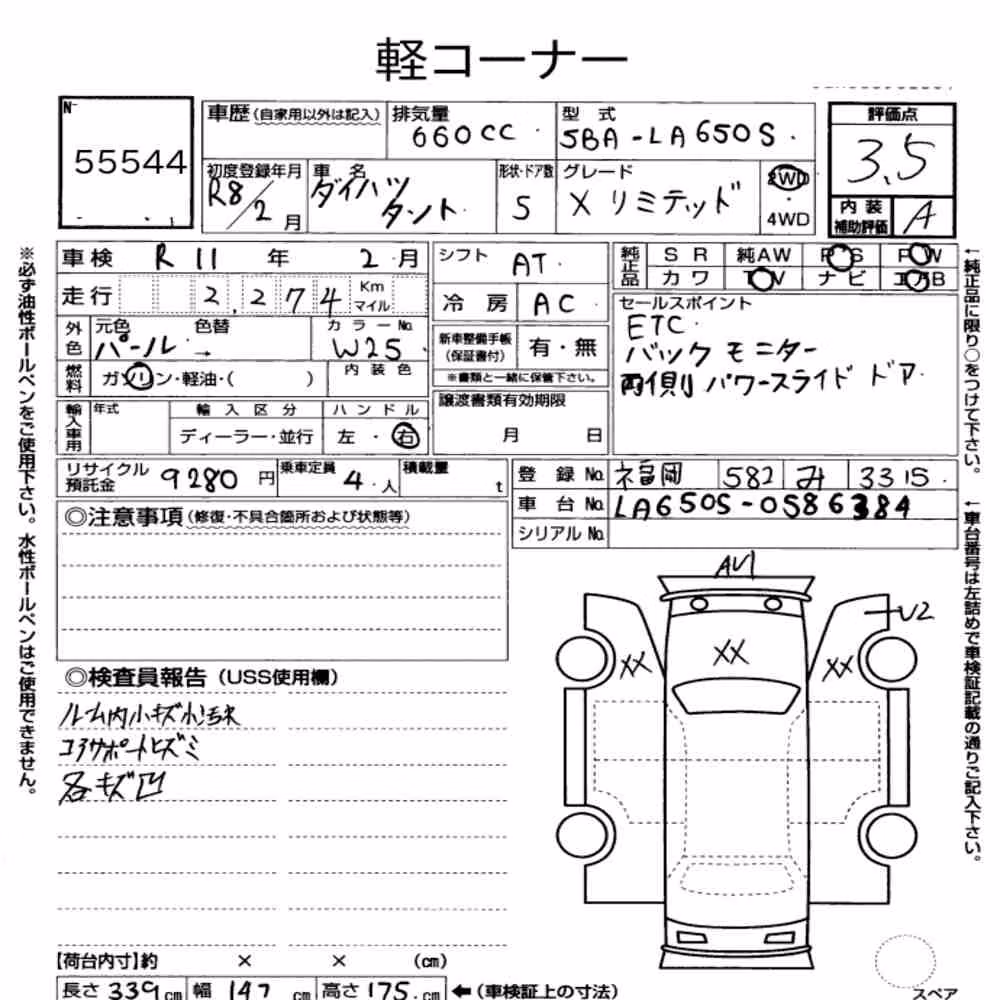 軽コーナー
N-
55544
車歴 (自家用以外は記入)
排気量
660CC
型式
5BA-LA650S
評価点
3.5
内装
補助評価
A
初度登録年月
R8/2月
車名
ダイハツ
タント
形状・ドア数
5
グレード
X リミテッド
2WD
・
4WD
車検 R11年 2月
走行 2,274 Km
マイル
外色
元色
パール
色替
→
カラーNo.
W25
燃料
ガソリン・軽油・( )
内装色
輸入車用
年式
輸入区分
ディーラー・並行
ハンドル
左・右
シフト AT
冷房 AC
新車整備手帳
(保証書付)
有・無
※書類と一緒に保管下さい。
譲渡書類有効期限
月 日
純正品
SR 純AW PS PW
カワ TV ナビ エアB
セールスポイント
ETC
バックモニター
両側パワースライドドア
リサイクル
預託金
9280円
乗車定員
4.人
積載量
t
登録No. 福岡 582 み 3315
車台No. LA650S-0586384
シリアルNo.
◎注意事項 (修復・不具合箇所および状態等)
◎検査員報告 (USS使用欄)
ルーム内小キズ小汚れ
コアサポートヒズミ
各キズ凹
AU1
U2
XX
XX
XX
【荷台内寸】約 × × (cm)
長さ 339cm 幅 147cm 高さ 175cm ←(車検証上の寸法)
スペア
※必ず油性ボールペンをご使用下さい。水性ボールペンはご使用できません。
←純正品に限り○をつけて下さい。
←車台番号は左詰めで車検証記載の通りご記入下さい。